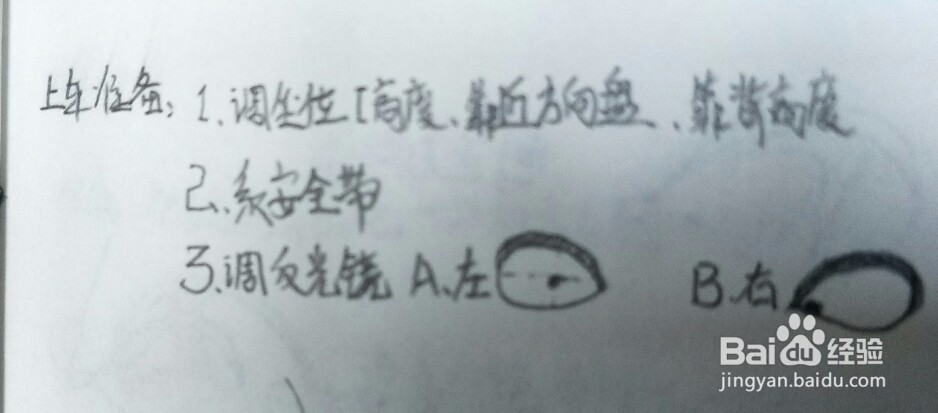 上车准备: 1.调坐位[高度、靠近方向盘、靠背高度
2.系安全带
3.调反光镜 A.左 B.右
Bai du 经验
jingyan.baidu.com